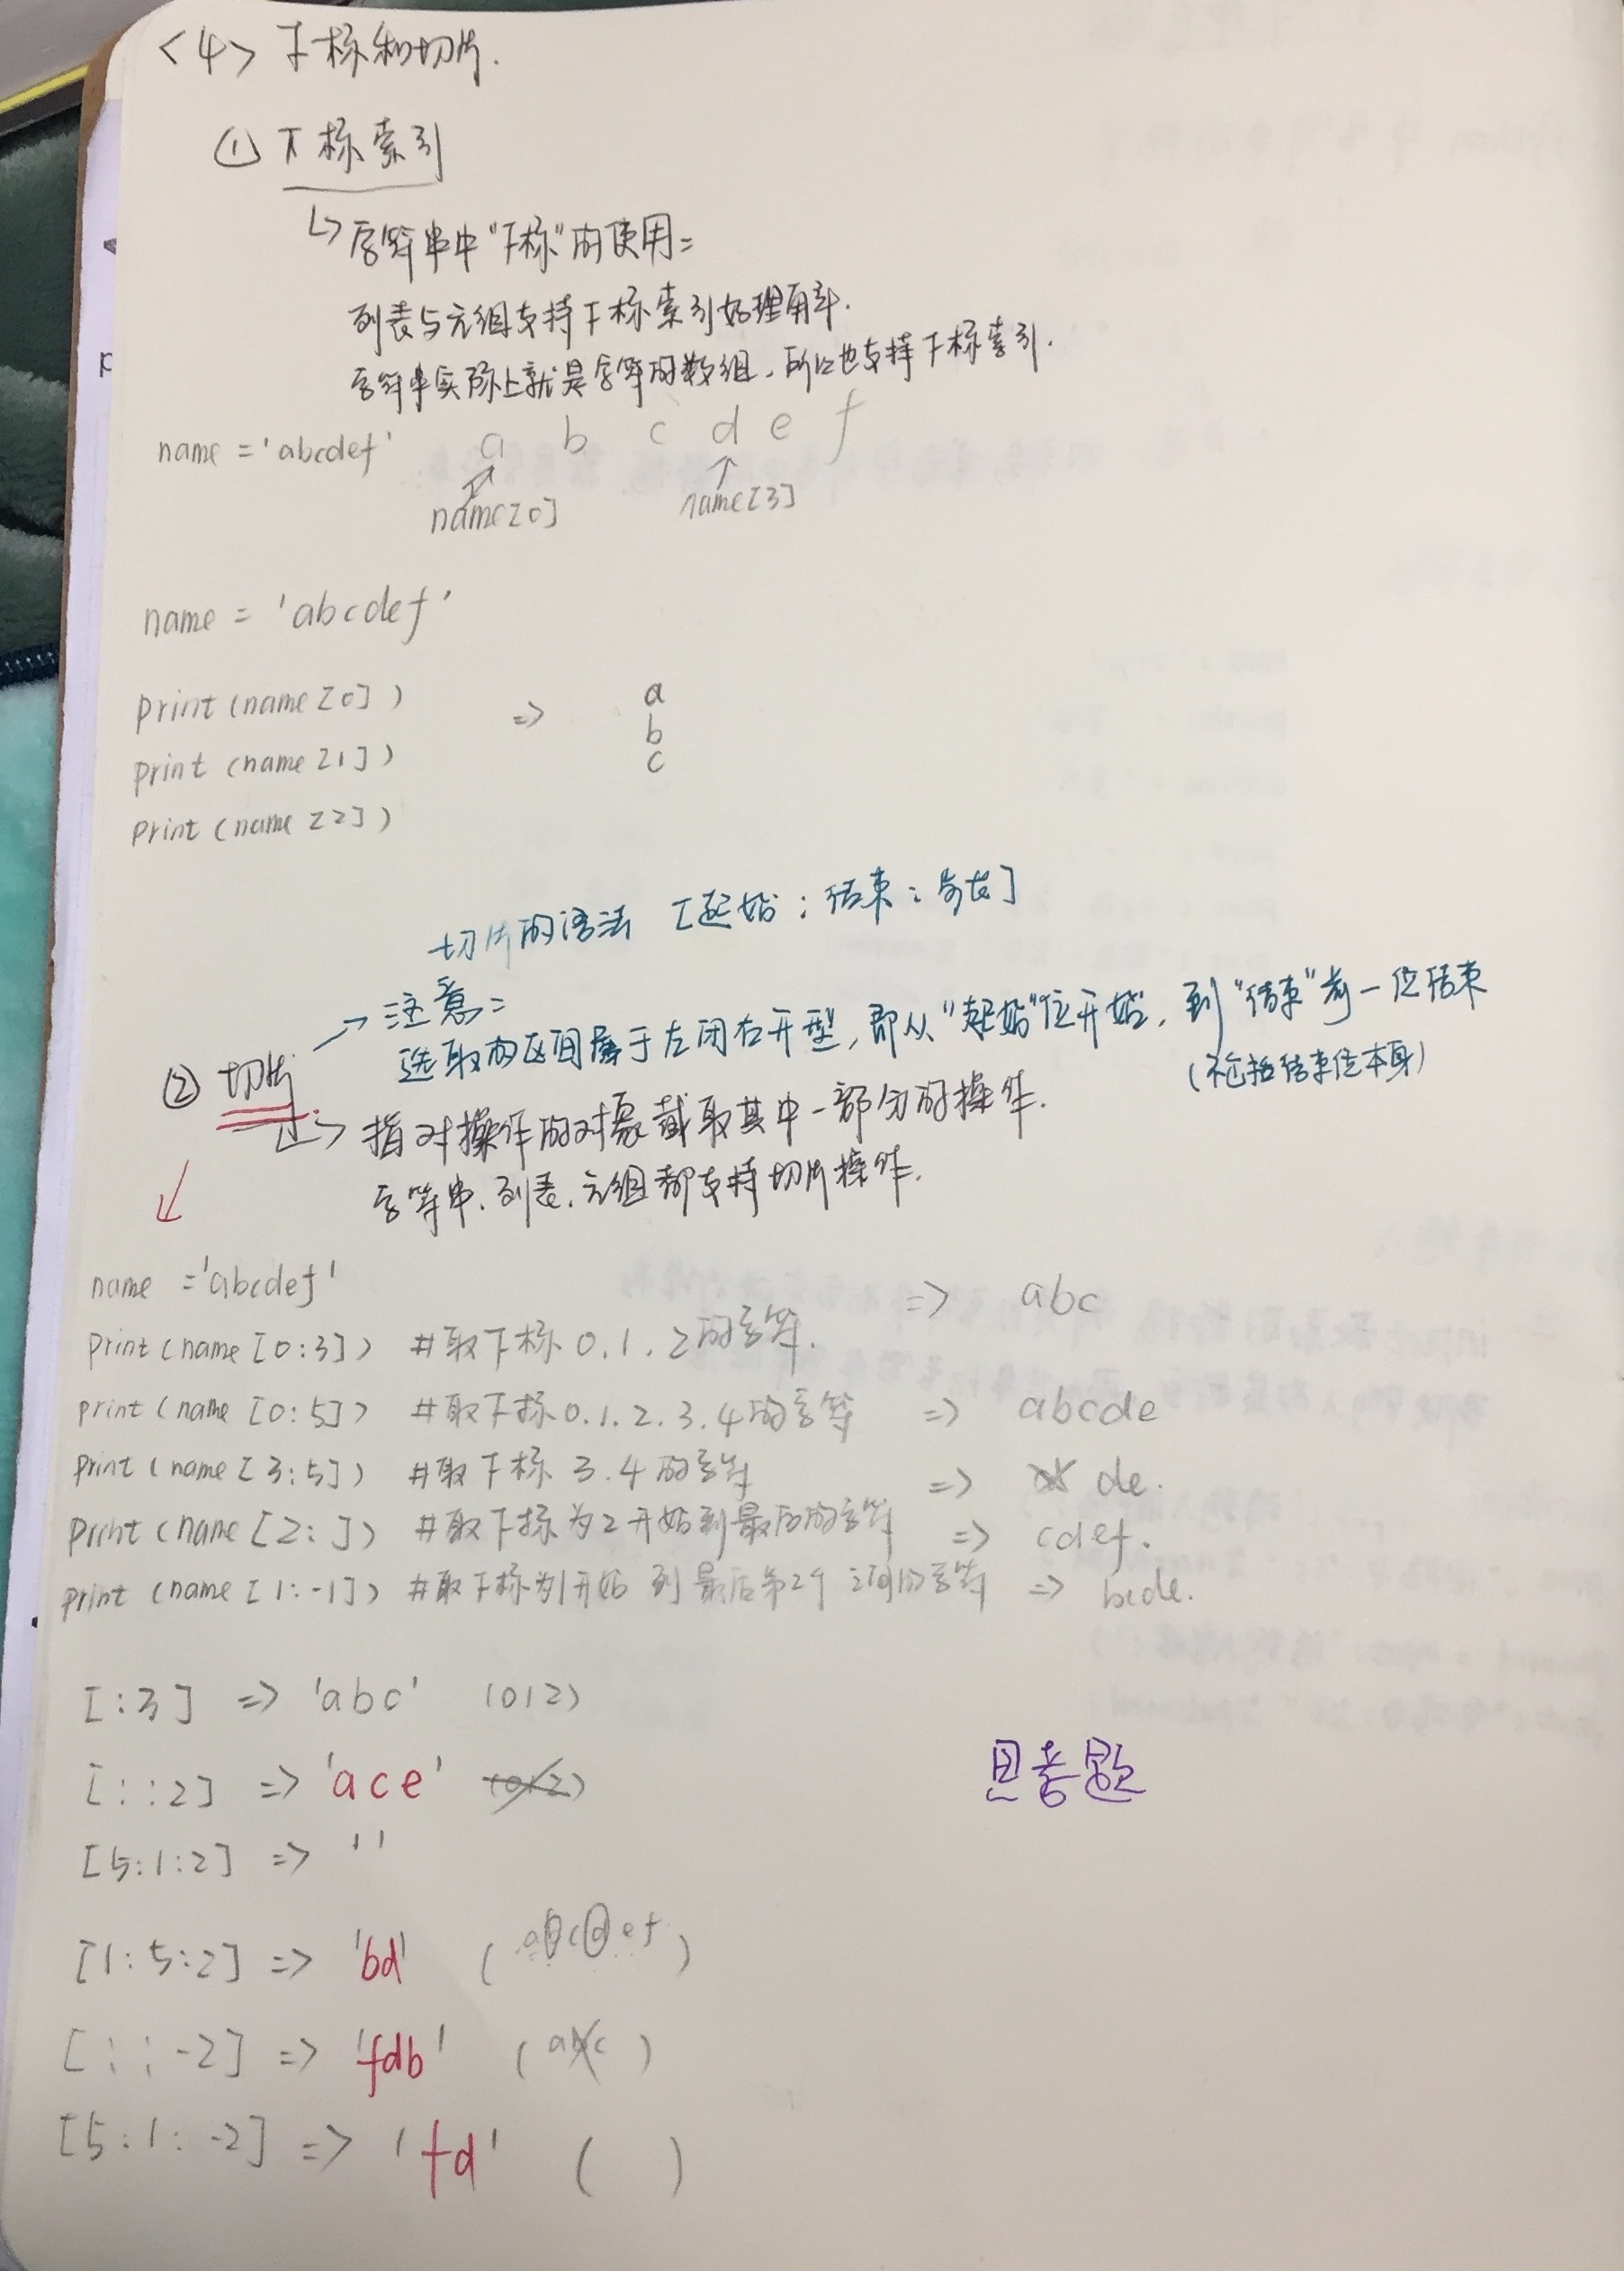 <4> 下标和切片.
① 下标索引
↳ 字符串中"下标"的使用:
列表与元组支持下标索引好理解.
字符串实际上就是字符的数组, 所以也支持下标索引.
name = 'abcdef' a b c d e f
name[0] name[3]
name = 'abcdef'
print(name[0]) => a
print(name[1]) b
print(name[2]) c
切片的语法 [起始:结束:步长]
→注意:
选取的区间属于左闭右开型, 即从"起始"位开始, 到"结束"前一位结束
(不包括结束位本身)
② 切片
↳ 指对操作的对象截取其中一部分的操作.
字符串、列表、元组都支持切片操作.
name = 'abcdef'
print(name[0:3]) #取下标0、1、2的字符. => abc
print(name[0:5]) #取下标0、1、2、3、4的字符 => abcde
print(name[3:5]) #取下标3、4的字符 => de.
print(name[2:]) #取下标为2开始到最后的字符 => cdef.
print(name[1:-1]) #取下标为1开始到最后第2个之间的字符 => bcde.
[:3] => 'abc' (012)
[::2] => 'ace' (012)
思考题
[5:1:2] => ''
[1:5:2] => 'bd' (abcdef)
[::-2] => 'fdb' (abc)
[5:1:-2] => 'fd' ( )